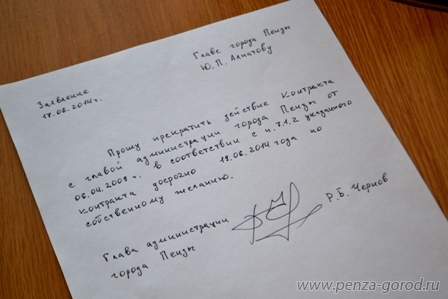 Главе города Пензы
Ю.П. Алпатову
Заявление
17.06.2014г.
Прошу прекратить действие контракта
с главой администрации города Пензы от
06.04.2009г. в соответствии с п. 7.1.2 указанного
контракта досрочно 19.06.2014 года по
собственному желанию.
Глава администрации
города Пензы
Р.Б. Чернов
www.penza-gorod.ru